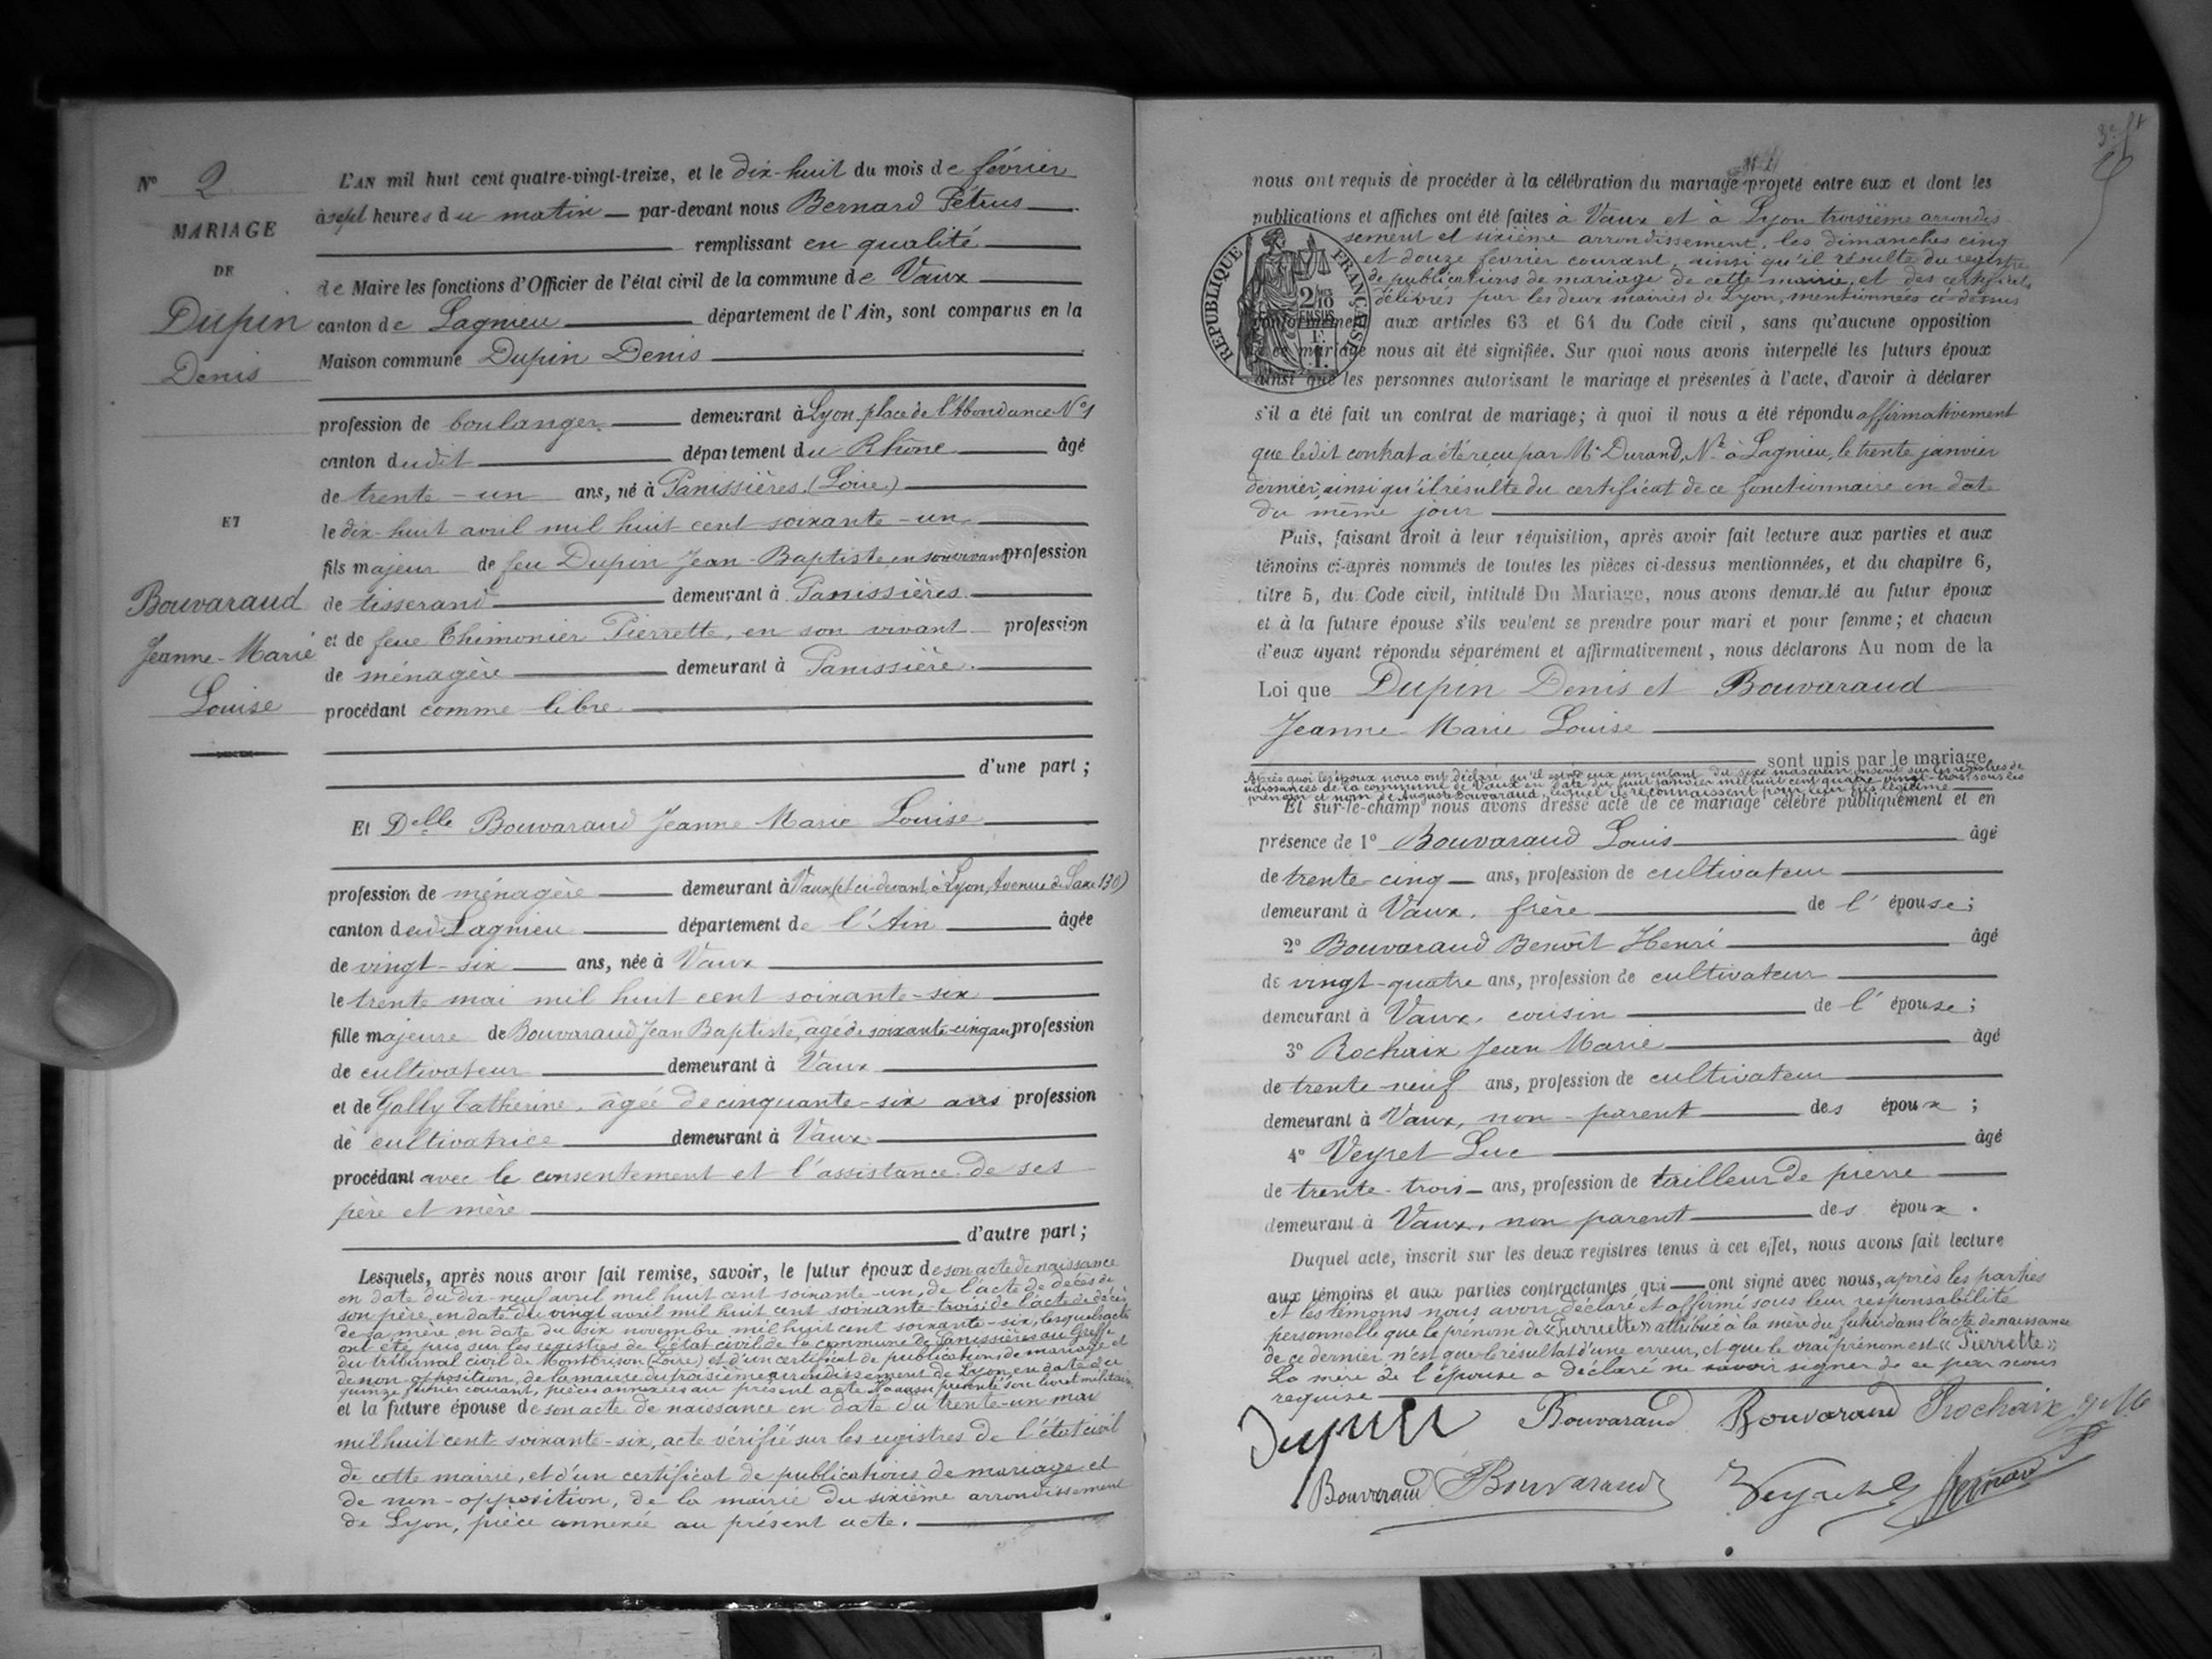 N° 2
MARIAGE
DE
Dupin
Denis
ET
Bouvaraud
Jeanne-Marie
Louise
L'AN mil huit cent quatre-vingt-treize, et le dix-huit du mois de février
à sept heures du matin par-devant nous Bernard Pétrus
remplissant en qualité
de Maire les fonctions d'Officier de l'état civil de la commune de Vaux
canton de Lagnieu département de l'Ain, sont comparus en la
Maison commune Dupin Denis
profession de boulanger demeurant à Lyon, place de l'Abondance N° 1
canton dudit département du Rhône âgé
de trente-un ans, né à Panissières (Loire)
le dix-huit avril mil huit cent soixante-un
fils majeur de feu Dupin Jean-Baptiste, en son vivant profession
de tisserand demeurant à Panissières
et de feue Thimonier Pierrette, en son vivant profession
de ménagère demeurant à Panissière
procédant comme libre
d'une part ;
Et Delle Bouvaraud Jeanne Marie Louise
profession de ménagère demeurant à Vaux (et ci-devant à Lyon, Avenue de Saxe 130)
canton de Lagnieu département de l'Ain âgée
de vingt-six ans, née à Vaux
le trente mai mil huit cent soixante-six
fille majeure de Bouvaraud Jean Baptiste, âgé de soixante-cinq ans profession
de cultivateur demeurant à Vaux
et de Gally Catherine, âgée de cinquante-six ans profession
de cultivatrice demeurant à Vaux
procédant avec le consentement et l'assistance de ses
père et mère
d'autre part ;
Lesquels, après nous avoir fait remise, savoir, le futur époux de son acte de naissance
en date du dix-neuf avril mil huit cent soixante-un, de l'acte de décès de
son père en date du vingt avril mil huit cent soixante-trois, de l'acte de décès
de sa mère en date du six novembre mil huit cent soixante-six, lesquels actes
ont été pris sur les registres de l'état civil de la commune de Panissières au Greffe
du tribunal civil de Montbrison (Loire) et d'un certificat de publications de mariage et
de non opposition, de la mairie du troisième arrondissement de Lyon en date de ce
quinze février courant, pièces annexées au présent acte. Il a aussi présenté son livret militaire
et la future épouse de son acte de naissance en date du trente-un mai
mil huit cent soixante-six, acte vérifié sur les registres de l'état civil
de cette mairie, et d'un certificat de publications de mariage et
de non-opposition, de la mairie du sixième arrondissement
de Lyon, pièce annexée au présent acte.
nous ont requis de procéder à la célébration du mariage projeté entre eux et dont les
publications et affiches ont été faites à Vaux et à Lyon troisième arrondis
sement et sixième arrondissement, les dimanches cinq
et douze février courant, ainsi qu'il résulte du registre
de publications de mariage de cette mairie, et des certificats
délivrés par les deux mairies de Lyon, mentionnées ci-dessus
REPUBLIQUE FRANÇAISE
conformément aux articles 63 et 64 du Code civil, sans qu'aucune opposition
à ce mariage nous ait été signifiée. Sur quoi nous avons interpellé les futurs époux
ainsi que les personnes autorisant le mariage et présentes à l'acte, d'avoir à déclarer
s'il a été fait un contrat de mariage; à quoi il nous a été répondu affirmativement
que ledit contrat a été reçu par Me Durand, Nre à Lagnieu, le trente janvier
dernier, ainsi qu'il résulte du certificat de ce fonctionnaire en date
du même jour
Puis, faisant droit à leur réquisition, après avoir fait lecture aux parties et aux
témoins ci-après nommés de toutes les pièces ci-dessus mentionnées, et du chapitre 6,
titre 5, du Code civil, intitulé Du Mariage, nous avons demandé au futur époux
et à la future épouse s'ils veulent se prendre pour mari et pour femme ; et chacun
d'eux ayant répondu séparément et affirmativement, nous déclarons Au nom de la
Loi que Dupin Denis et Bouvaraud
Jeanne-Marie Louise
sont unis par le mariage
Après quoi les époux nous ont déclaré qu'il est né d'eux un enfant du sexe masculin inscrit sur les registres de
naissances de la commune de Vaux en date du huit janvier mil huit cent quatre vingt-trois, sous les
prénom et nom de Auguste Bouvaraud, lequel ils reconnaissent pour leur fils légitime
Et sur-le-champ nous avons dressé acte de ce mariage célébré publiquement et en
présence de 1° Bouvaraud Louis âgé
de trente-cinq ans, profession de cultivateur
demeurant à Vaux, frère de l'épouse ;
2° Bouvaraud Benoît Henri âgé
de vingt-quatre ans, profession de cultivateur
demeurant à Vaux, cousin de l'épouse ;
3° Rochaix Jean Marie âgé
de trente-neuf ans, profession de cultivateur
demeurant à Vaux, non-parent des époux ;
4° Veyret Luc âgé
de trente-trois ans, profession de tailleur de pierre
demeurant à Vaux, non parent des époux.
Duquel acte, inscrit sur les deux registres tenus à cet effet, nous avons fait lecture
aux témoins et aux parties contractantes qui ont signé avec nous, après les parties
et les témoins nous avoir déclaré et affirmé sous leur responsabilité
personnelle que le prénom de « Pierriette » attribué à la mère du futur dans l'acte de naissance
de ce dernier n'est que le résultat d'une erreur, et que le vrai prénom est « Pierrette »
La mère de l'épouse a déclaré ne savoir signer de ce par nous
requise
Dupin Bouvaraud Bouvaraud Rochaix
Bouvaraud Bouvaraud Veyret L Bernard